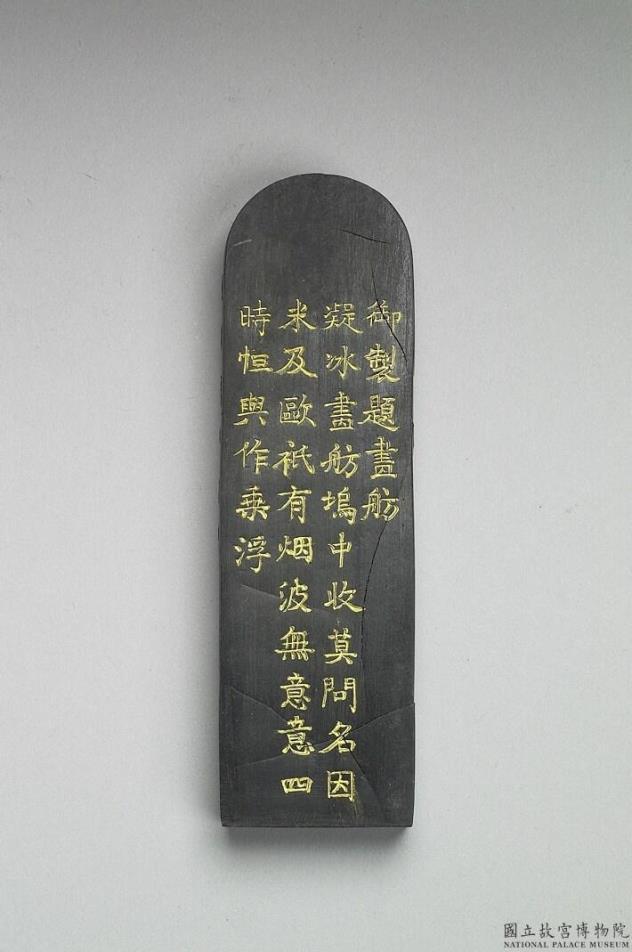 御製題畫舫
凝冰畫舫塢中收莫問名因
米及歐秖有烟波無意意四
時恒與作乘浮
國立故宮博物院
NATIONAL PALACE MUSEUM